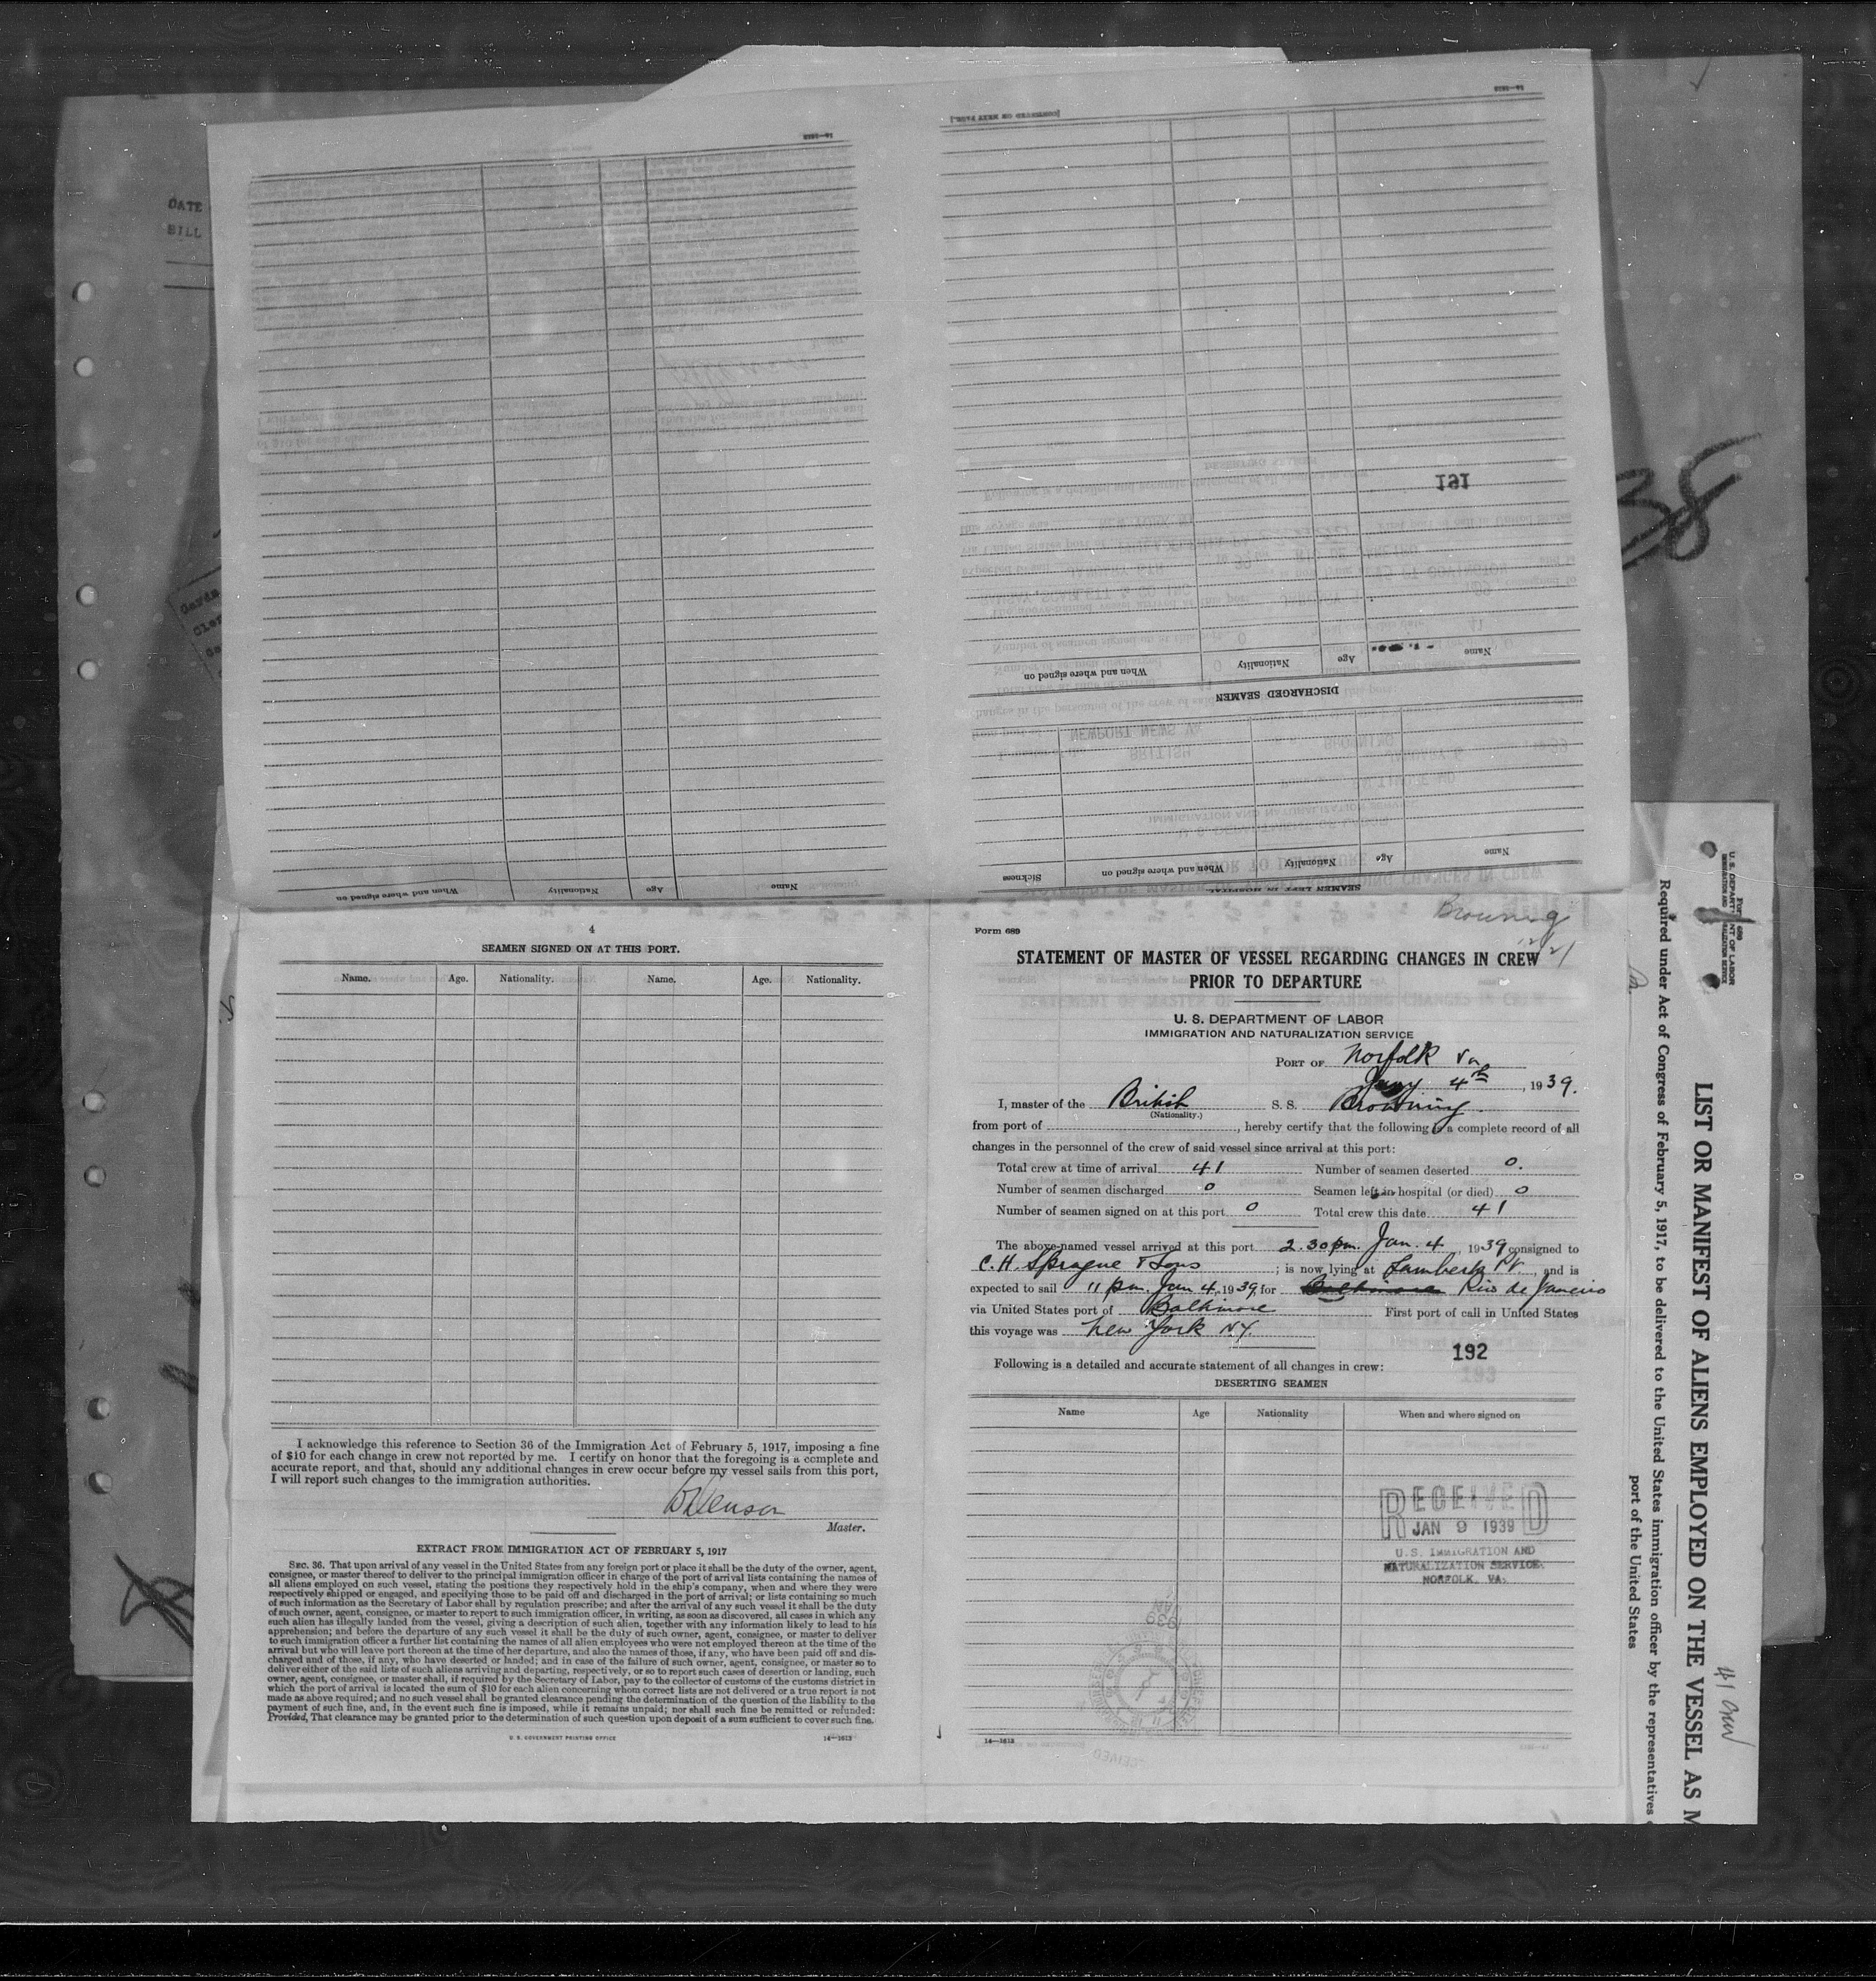 DATE
BILL
38
14—1613
14—1613
[CONTINUED ON NEXT PAGE.]
191
Name
Age
Nationality
When and where signed on
DISCHARGED SEAMEN
Name
Age
Nationality
When and where signed on
Sickness
SEAMEN LEFT IN HOSPITAL
Name
Age
Nationality
When and where signed on
4
SEAMEN SIGNED ON AT THIS PORT.
Name. Age. Nationality. Name. Age. Nationality.
I acknowledge this reference to Section 36 of the Immigration Act of February 5, 1917, imposing a fine
of $10 for each change in crew not reported by me. I certify on honor that the foregoing is a complete and
accurate report, and that, should any additional changes in crew occur before my vessel sails from this port,
I will report such changes to the immigration authorities.
Master.
EXTRACT FROM IMMIGRATION ACT OF FEBRUARY 5, 1917
SEC. 36. That upon arrival of any vessel in the United States from any foreign port or place it shall be the duty of the owner, agent,
consignee, or master thereof to deliver to the principal immigration officer in charge of the port of arrival lists containing the names of
all aliens employed on such vessel, stating the positions they respectively hold in the ship's company, when and where they were
respectively shipped or engaged, and specifying those to be paid off and discharged in the port of arrival; or lists containing so much
of such information as the Secretary of Labor shall by regulation prescribe; and after the arrival of any such vessel it shall be the duty
of such owner, agent, consignee, or master to report to such immigration officer, in writing, as soon as discovered, all cases in which any
such alien has illegally landed from the vessel, giving a description of such alien, together with any information likely to lead to his
apprehension; and before the departure of any such vessel it shall be the duty of such owner, agent, consignee, or master to deliver
to such immigration officer a further list containing the names of all alien employees who were not employed thereon at the time of the
arrival but who will leave port thereon at the time of her departure, and also the names of those, if any, who have been paid off and dis-
charged and of those, if any, who have deserted or landed; and in case of the failure of such owner, agent, consignee, or master so to
deliver either of the said lists of such aliens arriving and departing, respectively, or so to report such cases of desertion or landing, such
owner, agent, consignee, or master shall, if required by the Secretary of Labor, pay to the collector of customs of the customs district in
which the port of arrival is located the sum of $10 for each alien concerning whom correct lists are not delivered or a true report is not
made as above required; and no such vessel shall be granted clearance pending the determination of the question of the liability to the
payment of such fine, and, in the event such fine is imposed, while it remains unpaid; nor shall such fine be remitted or refunded:
Provided, That clearance may be granted prior to the determination of such question upon deposit of a sum sufficient to cover such fine.
U. S. GOVERNMENT PRINTING OFFICE 14—1613
Browning
12/21
Form 689
STATEMENT OF MASTER OF VESSEL REGARDING CHANGES IN CREW
PRIOR TO DEPARTURE
U. S. DEPARTMENT OF LABOR
IMMIGRATION AND NATURALIZATION SERVICE
PORT OF Norfolk Va
Jany 4th, 1939.
I, master of the British S. S. Browning.
(Nationality.)
from port of , hereby certify that the following is a complete record of all
changes in the personnel of the crew of said vessel since arrival at this port:
Total crew at time of arrival 41 Number of seamen deserted 0.
Number of seamen discharged 0 Seamen left in hospital (or died) 0
Number of seamen signed on at this port 0 Total crew this date 41
The above-named vessel arrived at this port 2.30 pm. Jan. 4, 1939 consigned to
C. H. Sprague & Sons ; is now lying at Lamberts Pt. , and is
expected to sail 11 pm. Jan 4, 1939, for Baltimore Rio de Janeiro
via United States port of Baltimore First port of call in United States
this voyage was New York N.Y.
192
Following is a detailed and accurate statement of all changes in crew:
DESERTING SEAMEN
Name Age Nationality When and where signed on
RECEIVED
JAN 9 1939
U.S. IMMIGRATION AND
NATURALIZATION SERVICE.
NORFOLK, VA.
14—1613
LIST OR MANIFEST OF ALIENS EMPLOYED ON THE VESSEL AS M
Required under Act of Congress of February 5, 1917, to be delivered to the United States immigration officer by the representatives
port of the United States
41 crew